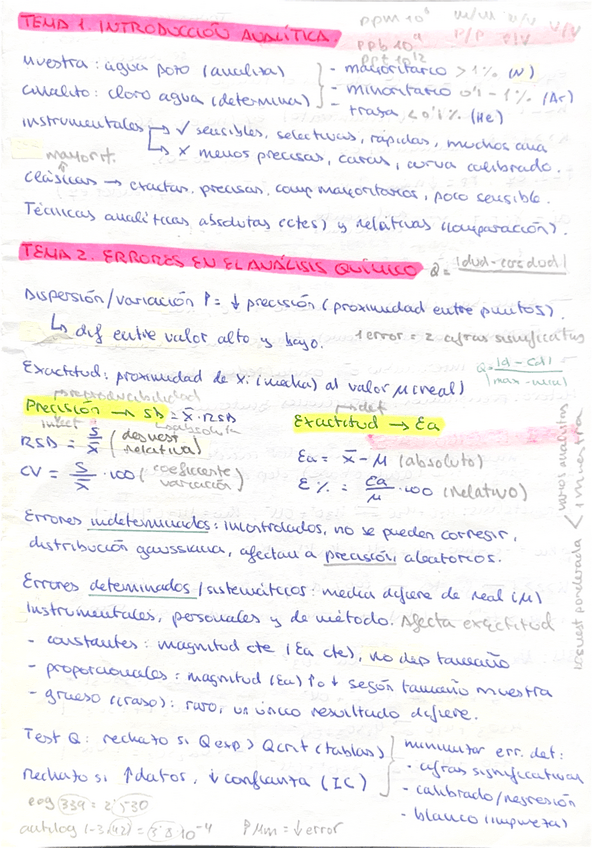 TEMA 1. INTRODUCCIÓN ANALÍTICA
ppm 10⁶ m/m m/v v/v
ppb 10⁹ P/P P/V
ppt 10¹²
muestra: agua pozo (analiza)
analito: cloro agua (determina)
- mayoritario > 1% (N)
- minoritario 0'1 - 1% (Ar)
- traza < 0'1% (He)
instrumentales → ✓ sensibles, selectivas, rápidas, muchos ana
↳ x menos precisas, caras, curva calibrado.
mayorit.
clásicas → exactas, precisas, comp mayoritarios, poco sensible.
Técnicas analíticas absolutas (ctes) y relativas (comparación).
TEMA 2. ERRORES EN EL ANÁLISIS QUÍMICO
Q = |dud - cercdud|
Dispersión/variación ↑ = ↓ precisión (proximidad entre puntos).
↳ dif entre valor alto y bajo.
1 error = 2 cifras significativas
Exactitud: proximidad de xi (media) al valor μ (real)
Q = |d - cd| / |max - min|
reproducibilidad
Precisión → SD = x̄ · RSD
absoluta
indet
Exactitud → Ea
det
RSD = s/x̄ (desvest relativa)
CV = s/x̄ · 100 (coeficiente variación)
Ea = x̄ - μ (absoluto)
E% = Ea/μ · 100 (relativo)
Errores indeterminados: incontrolados, no se pueden corregir,
distribución gaussiana, afectan a precisión aleatorios.
Errores determinados/sistemáticos: media difiere de real (μ)
Instrumentales, personales y de método. Afecta exactitud
- constantes: magnitud cte (Ea cte), no dep tamaño
- proporcionales: magnitud (Ea) ↑ o ↓ según tamaño muestra
- grueso (craso): raro, un único resultado difiere.
desvest ponderada < varios analitos
1 muestra
Test Q: rechazo si Qexp > Qcrit (tablas)
Rechazo si ↑ datos, ↓ confianza (IC)
minimizar err. det:
- cifras significativas
- calibrado/regresión
- blanco (impureza)
log 339 = 2'530
antilog (-3'42) = 3'8·10⁻⁴
↑ Mm = ↓ error